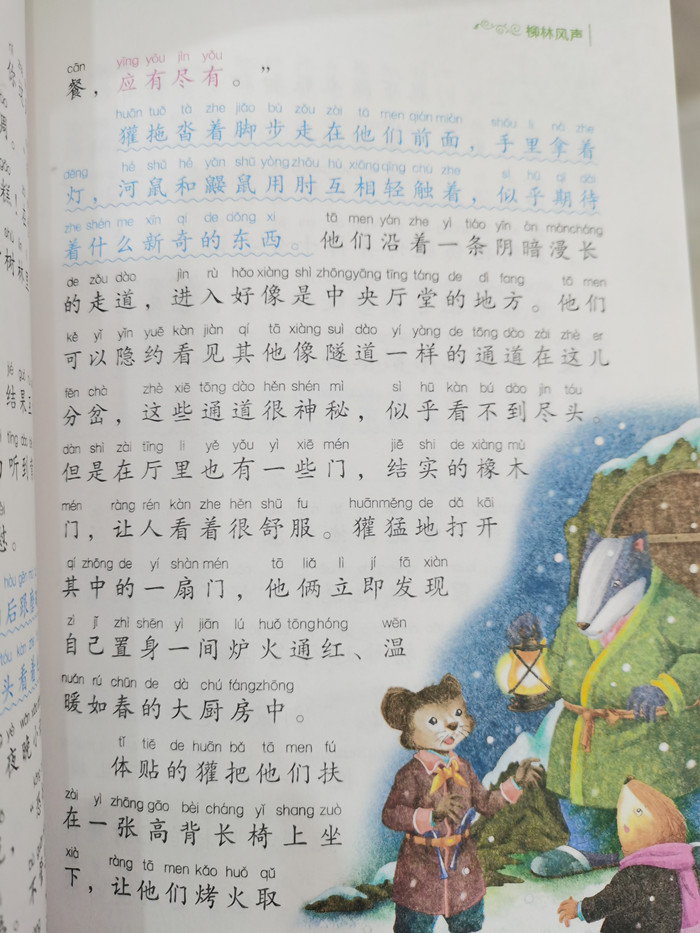 柳林风声
cān yīng yǒu jìn yǒu
餐，应有尽有。”
huān tuō tà zhe jiǎo bù zǒu zài tā men qián miàn shǒu lǐ ná zhe
獾拖沓着脚步走在他们前面，手里拿着
dēng hé shǔ hé yǎn shǔ yòng zhǒu hù xiāng qīng chù zhe sì hū qī dài
灯，河鼠和鼹鼠用肘互相轻触着，似乎期待
zhe shén me xīn qí de dōng xi tā men yán zhe yì tiáo yīn àn màn cháng
着什么新奇的东西。他们沿着一条阴暗漫长
de zǒu dào jìn rù hǎo xiàng shì zhōng yāng tīng táng de dì fang tā men
的走道，进入好像是中央厅堂的地方。他们
kě yǐ yǐn yuē kàn jiàn qí tā xiàng suì dào yí yàng de tōng dào zài zhè er
可以隐约看见其他像隧道一样的通道在这儿
fēn chà zhè xiē tōng dào hěn shén mì sì hū kàn bú dào jìn tóu
分岔，这些通道很神秘，似乎看不到尽头。
dàn shì zài tīng lǐ yě yǒu yì xiē mén jiē shi de xiàng mù
但是在厅里也有一些门，结实的橡木
mén ràng rén kàn zhe hěn shū fu huān měng de dǎ kāi
门，让人看着很舒服。獾猛地打开
qí zhōng de yí shàn mén tā liǎ lì jí fā xiàn
其中的一扇门，他俩立即发现
zì jǐ zhì shēn yì jiān lú huǒ tōng hóng wēn
自己置身一间炉火通红、温
nuǎn rú chūn de dà chú fáng zhōng
暖如春的大厨房中。
tǐ tiē de huān bǎ tā men fú
体贴的獾把他们扶
zài yì zhāng gāo bèi cháng yǐ shang zuò
在一张高背长椅上坐
xià ràng tā men kǎo huǒ qǔ
下，让他们烤火取